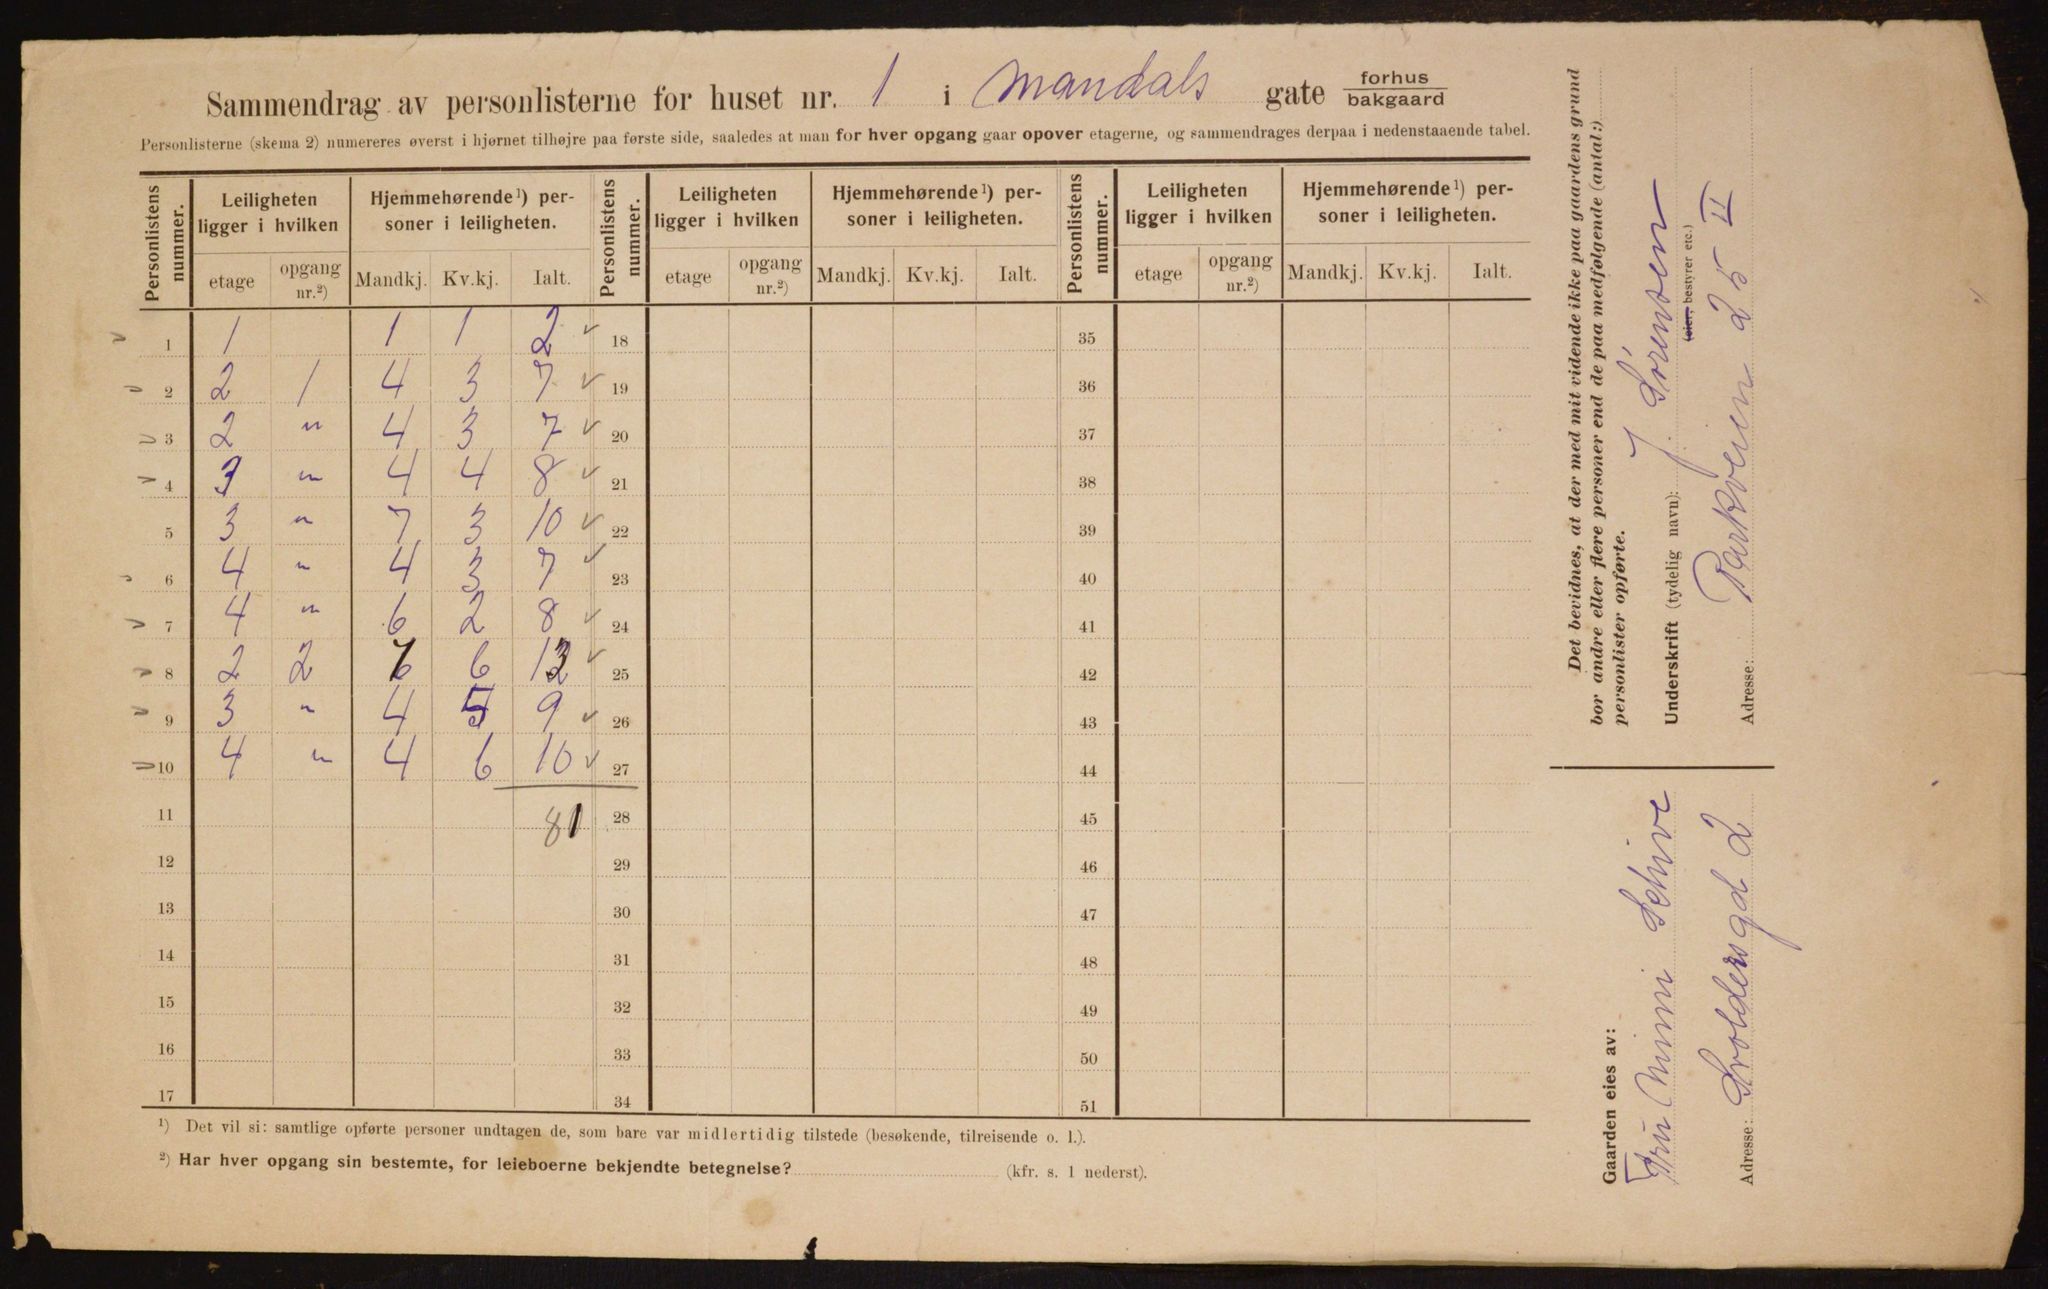 Sammendrag av personlisterne for huset nr. 1 i Mandals gate forhus
bakgaard
Personlisterne (skema 2) numereres øverst i hjørnet tilhøjre paa første side, saaledes at man for hver opgang gaar opover etagerne, og sammendrages derpaa i nedenstaaende tabel.
Personlistens nummer. Leiligheten ligger i hvilken Hjemmehørende¹) personer i leiligheten. Personlistens nummer. Leiligheten ligger i hvilken Hjemmehørende¹) personer i leiligheten. Personlistens nummer. Leiligheten ligger i hvilken Hjemmehørende¹) personer i leiligheten.
etage opgang nr.²) Mandkj. Kv.kj. Ialt. etage opgang nr.²) Mandkj. Kv.kj. Ialt. etage opgang nr.²) Mandkj. Kv.kj. Ialt.
1 1 1 1 2 ✓ 18 35
2 2 1 4 3 7 ✓ 19 36
3 2 " 4 3 7 ✓ 20 37
4 3 " 4 4 8 ✓ 21 38
5 3 " 7 3 10 ✓ 22 39
6 4 " 4 3 7 ✓ 23 40
7 4 " 6 2 8 ✓ 24 41
8 2 2 7 6 13 ✓ 25 42
9 3 " 4 5 9 ✓ 26 43
10 4 " 4 6 10 ✓ 27 44
11 81 28 45
12 29 46
13 30 47
14 31 48
15 32 49
16 33 50
17 34 51
¹) Det vil si: samtlige opførte personer undtagen de, som bare var midlertidig tilstede (besøkende, tilreisende o. l.).
²) Har hver opgang sin bestemte, for leieboerne bekjendte betegnelse? (kfr. s. 1 nederst).
Det bevidnes, at der med mit vidende ikke paa gaardens grund
bor andre eller flere personer end de paa medfølgende (antal:)
personlister opførte.
Underskrift (tydelig navn): J. Sørensen
(eier, bestyrer etc.)
Adresse: Parkveien 25 II
Gaarden eies av:
Fru Mimi Schive
Adresse: Svoldersgd 2